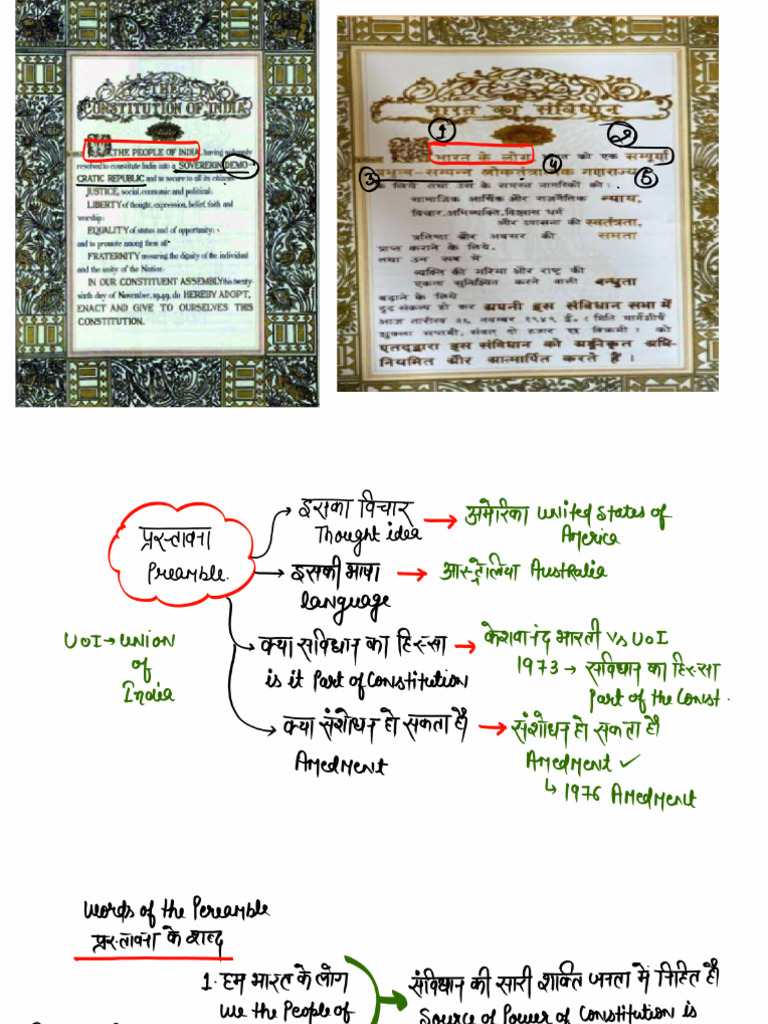 THE
CONSTITUTION OF INDIA
WE, THE PEOPLE OF INDIA, having solemnly
resolved to constitute India into a SOVEREIGN DEMO-
CRATIC REPUBLIC and to secure to all its citizens:
JUSTICE, social, economic and political;
LIBERTY of thought, expression, belief, faith and
worship;
EQUALITY of status and of opportunity;
and to promote among them all
FRATERNITY assuring the dignity of the individual
and the unity of the Nation;
IN OUR CONSTITUENT ASSEMBLY this twenty-
sixth day of November, 1949, do HEREBY ADOPT,
ENACT AND GIVE TO OURSELVES THIS
CONSTITUTION.
भारत का संविधान
1
2
भारत के लोग को एक सम्पूर्ण
4
3
प्रभुत्व-सम्पन्न लोकतंत्रात्मक गणराज्य
5
के लिये तथा उस के समस्त नागरिकों को :
सामाजिक आर्थिक और राजनैतिक न्याय,
विचार, अभिव्यक्ति, विश्वास धर्म
और उपासना की स्वतंत्रता,
प्रतिष्ठा और अवसर की समता
प्राप्त कराने के लिये,
तथा उन सब में
व्यक्ति की गरिमा और राष्ट्र की
एकता सुनिश्चित करने वाली बन्धुता
बढ़ाने के लिये
दृढ़ संकल्प हो कर अपनी इस संविधान सभा में
आज तारीख २६ नवम्बर १९४९ ई. (मिति मार्गशीर्ष
शुक्ला सप्तमी, संवत् दो हजार छ विक्रमी) को
एतद्द्वारा इस संविधान को अङ्गीकृत अधि-
नियमित और आत्मार्पित करते हैं।
प्रस्तावना
Preamble.
इसका विचार
Thought idea
अमेरिका United States of
America
इसकी भाषा
language
आस्ट्रेलिया Australia
UOI → UNION
of
India
क्या सविधान का हिस्सा
is it Part of Constitution
केशवानंद भारती vs UOI
1973 → सविधान का हिस्सा
Part of the Const.
क्या संशोधन हो सकता है
Amedment
संशोधन हो सकता है
Amedment ✓
↳ 1976 Amedment
Words of the Pereamble
प्रस्तावना के शब्द
1. हम भारत के लोग
We the People of
संविधान की सारी शक्ति जनता में निहित है
Source of Power of Constitution is